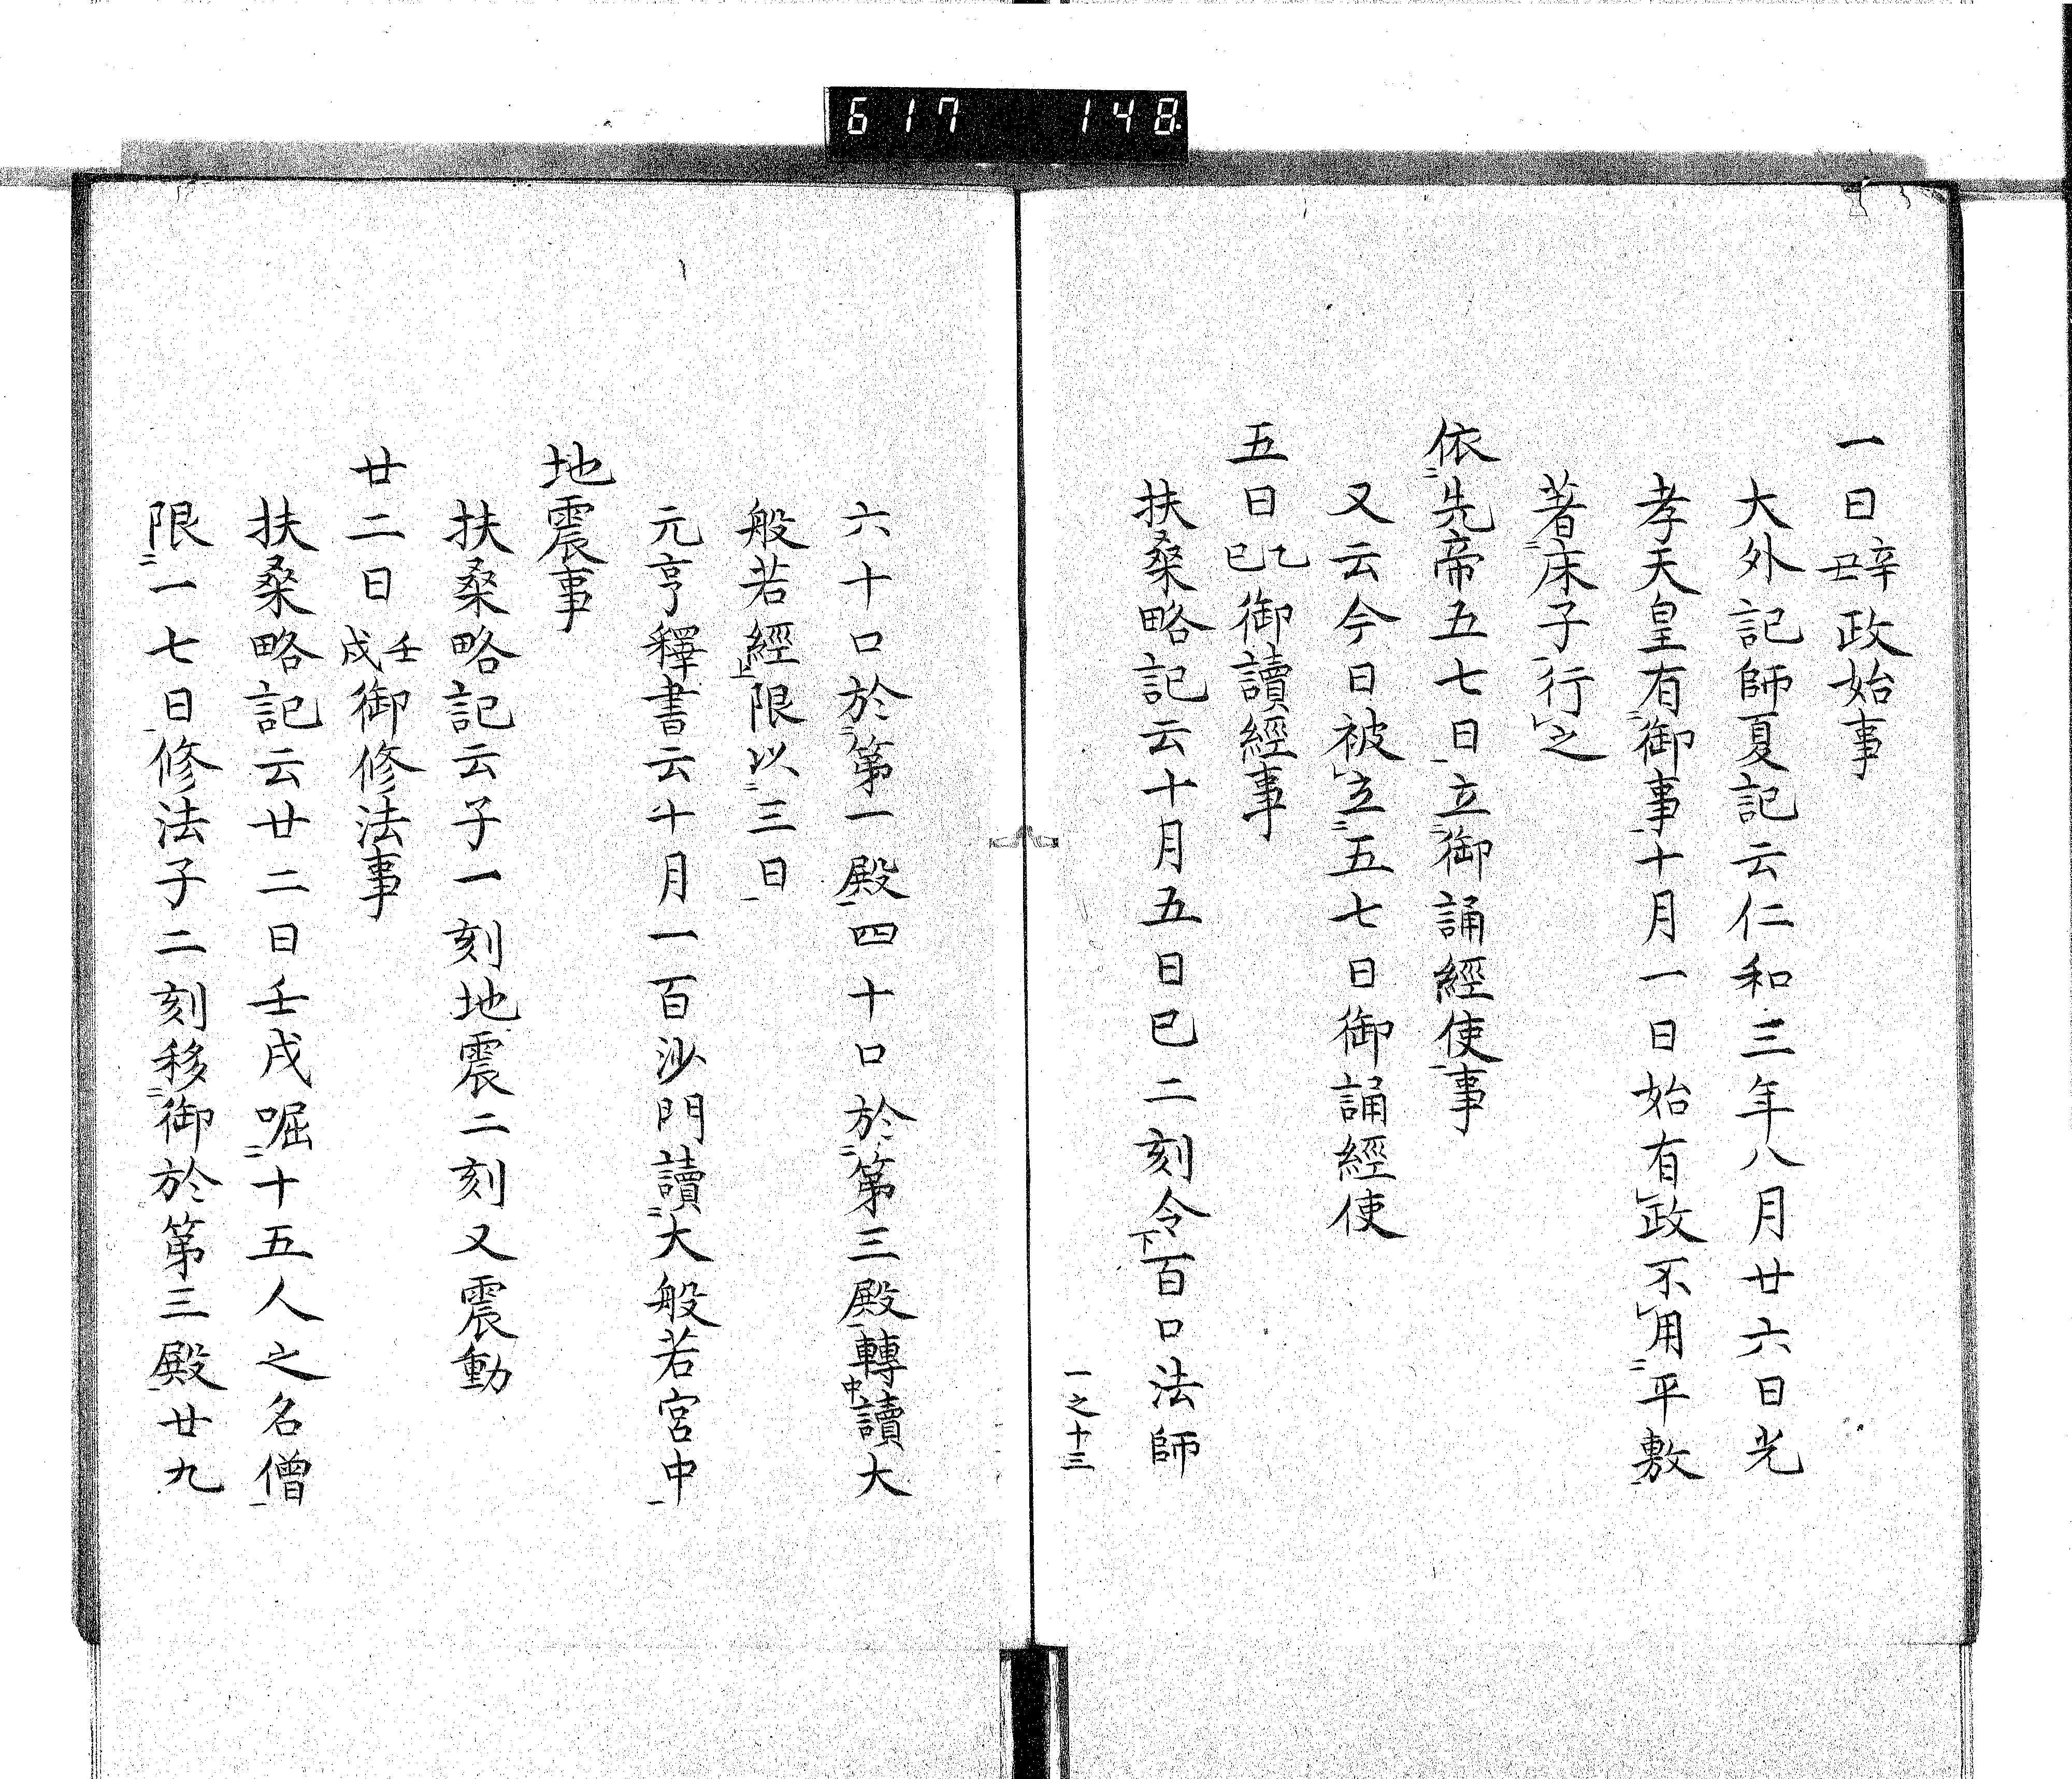 617 148
一日辛丑政始事
大外記師夏記云仁和三年八月廿六日光
孝天皇有二御事一十月一日始有レ政不レ用二平敷一
著二床子一行レ之
依二先帝五七日一立二御誦經使一事
又云今日被レ立二五七日御誦經使
五日乙巳御讀經事
扶桑略記云十月五日巳二刻令下百口法師
一之十三
六十口於二第一殿一四十口於二第三殿一轉中讀大
般若經上限以二三日一
元亨釋書云十月一百沙門讀二大般若宮中一
地震事
扶桑略記云子一刻地震二刻又震動
廿二日壬戌御修法事
扶桑略記云廿二日壬戌啒二十五人之名僧一
限二一七日一修法子二刻移二御於第三殿一廿九